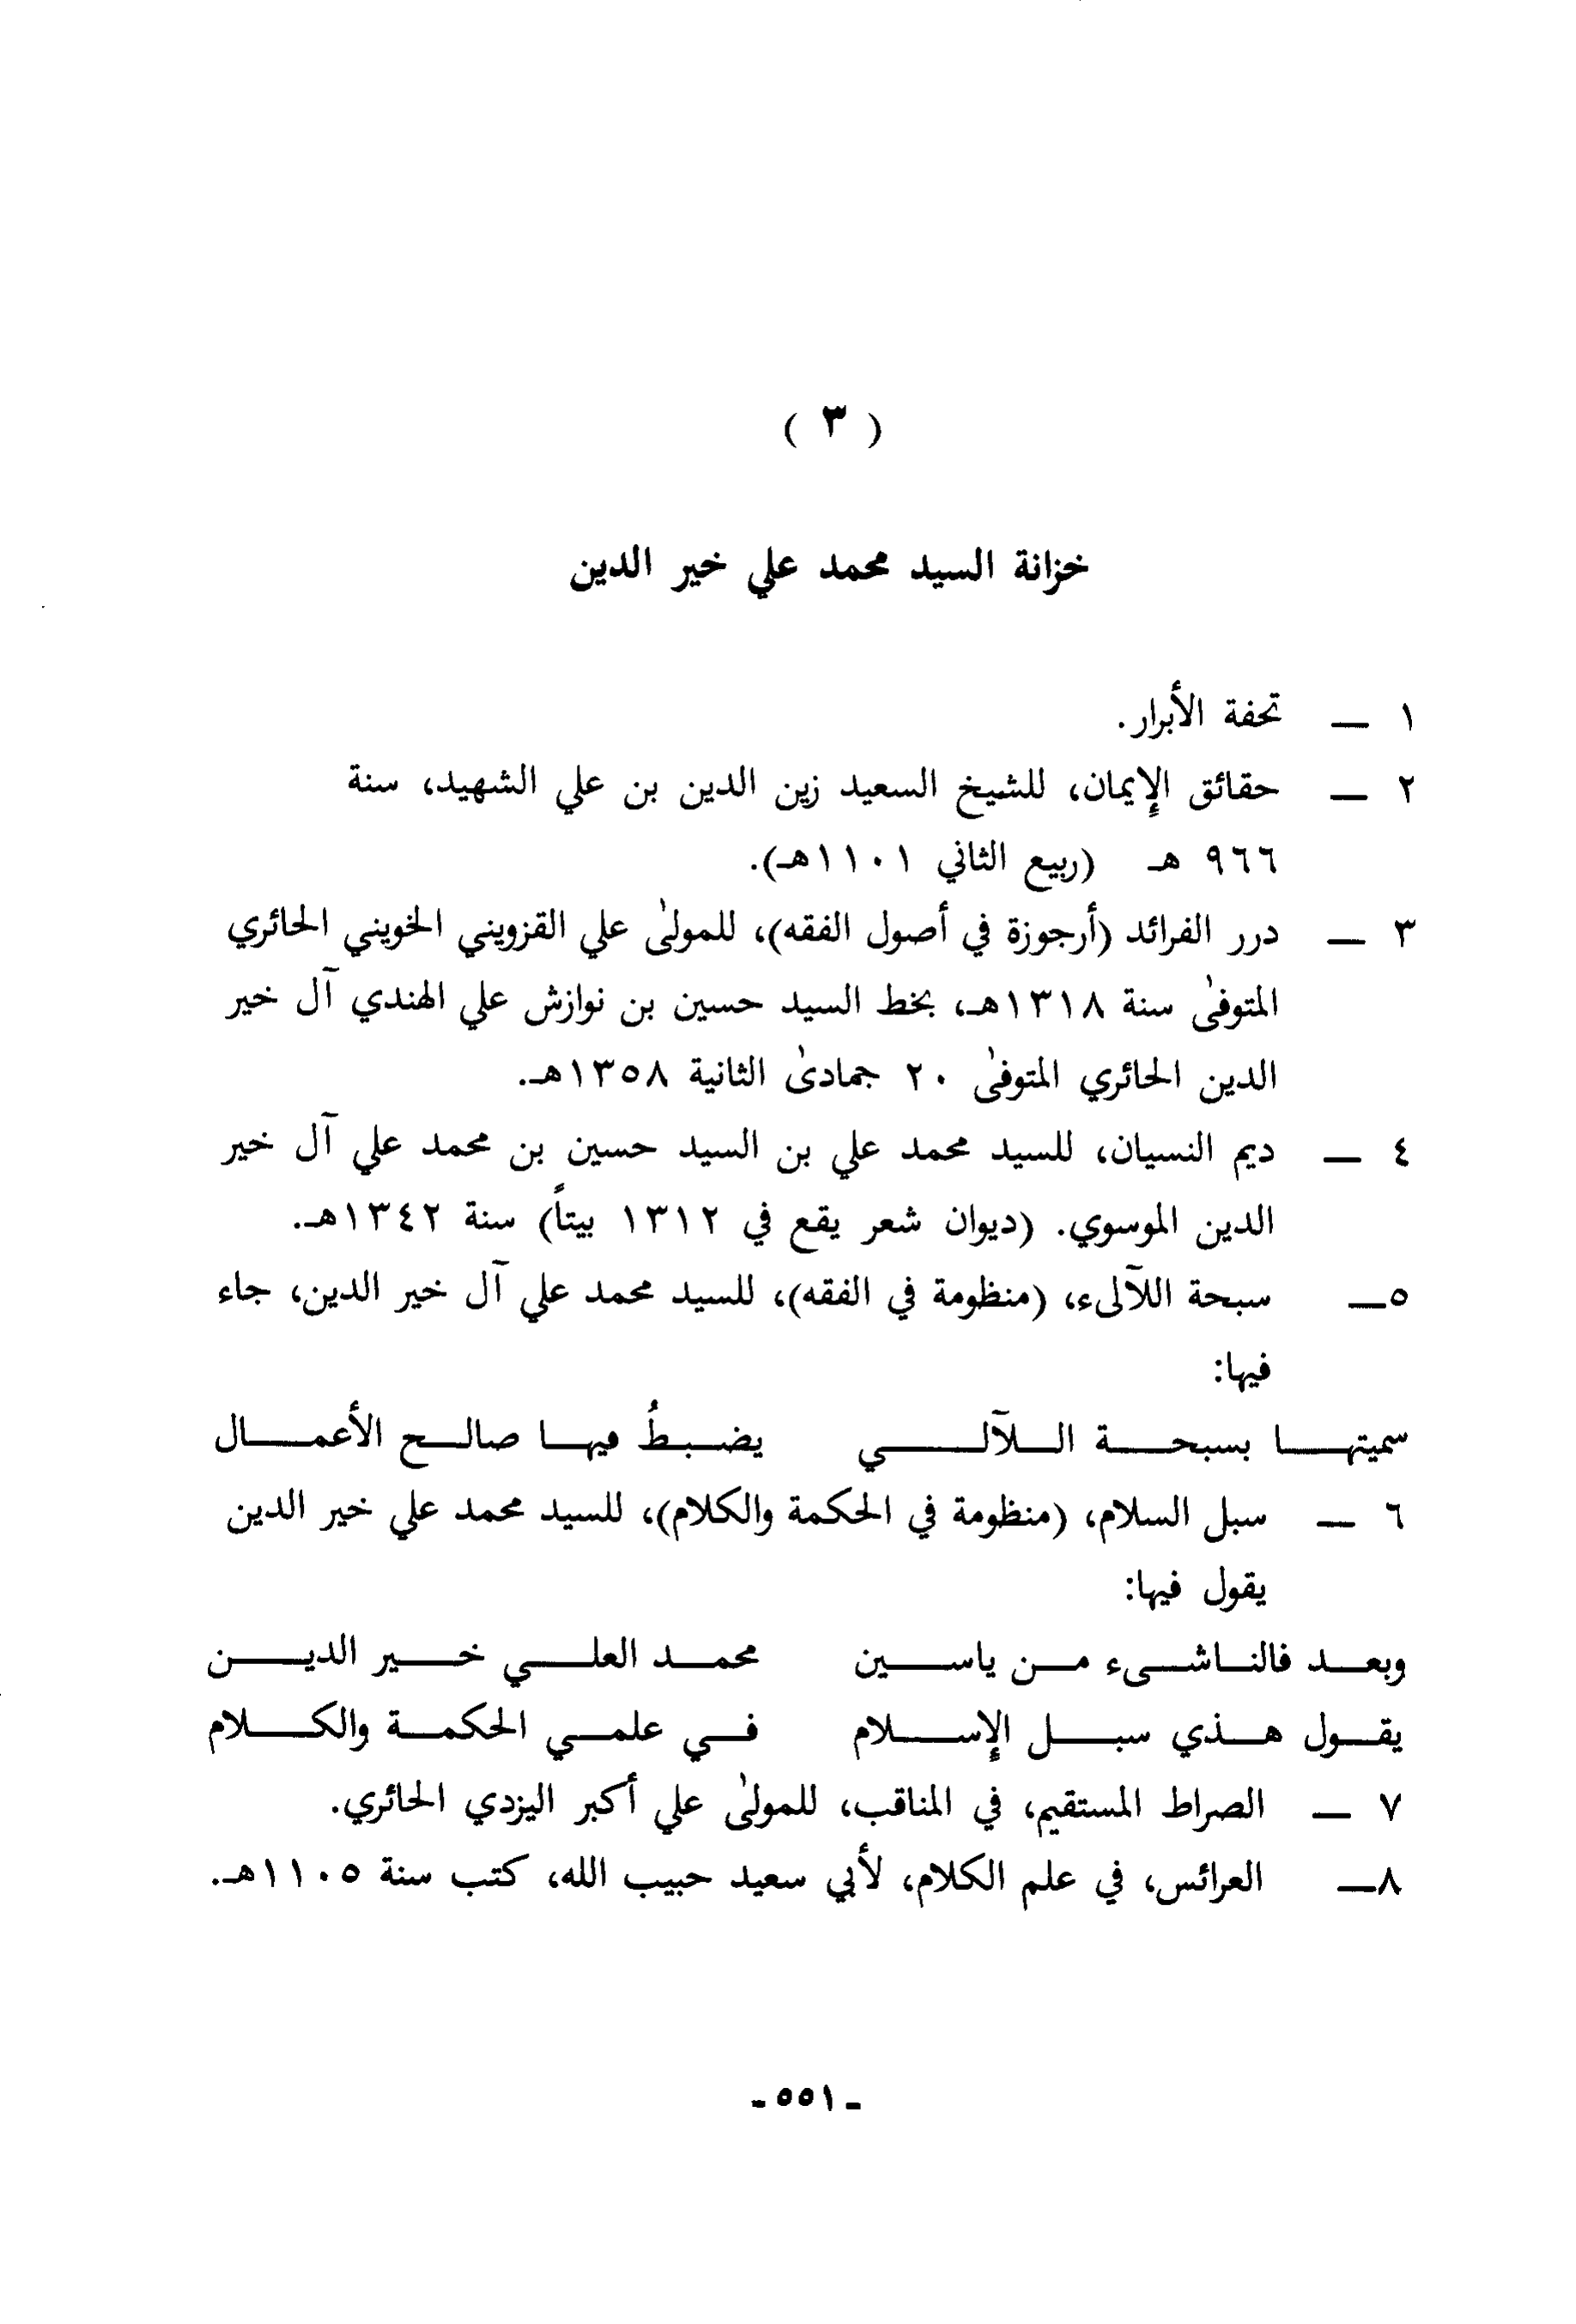 ( ٣ )
خزانة السيد محمد علي خير الدين
١ — تحفة الأبرار.
٢ — حقائق الإيمان، للشيخ السعيد زين الدين بن علي الشهيد، سنة
٩٦٦ هـ (ربيع الثاني ١١٠١هـ).
٣ — درر الفرائد (أرجوزة في أصول الفقه)، للمولىٰ علي القزويني الخويني الحائري
المتوفىٰ سنة ١٣١٨هـ، بخط السيد حسين بن نوازش علي الهندي آل خير
الدين الحائري المتوفىٰ ٢٠ جمادىٰ الثانية ١٣٥٨هـ.
٤ — ديم النسيان، للسيد محمد علي بن السيد حسين بن محمد علي آل خير
الدين الموسوي. (ديوان شعر يقع في ١٣١٢ بيتاً) سنة ١٣٤٢هـ.
٥— سبحة اللآلىء، (منظومة في الفقه)، للسيد محمد علي آل خير الدين، جاء
فيها:
سميتهـــا بسبحـــة الـــلآلـــي يضـبـطُ فيهـا صالـح الأعمـال
٦ — سبل السلام، (منظومة في الحكمة والكلام)، للسيد محمد علي خير الدين
يقول فيها:
وبعـد فالنـاشـىء مـن ياسـين محمـد العلـي خـير الديـن
يقـول هـذي سبـل الإسـلام فـي علمـي الحكمـة والكـلام
٧ — الصراط المستقيم، في المناقب، للمولىٰ علي أكبر اليزدي الحائري.
٨— العرائس، في علم الكلام، لأبي سعيد حبيب الله، كتب سنة ١١٠٥هـ.
- ٥٥١ -